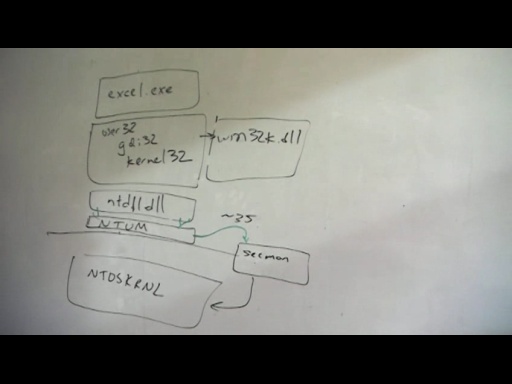 excel.exe
user32
gdi32
kernel32
win32k.dll
ntdll.dll
NTUM
~35
secmon
NTOSKRNL